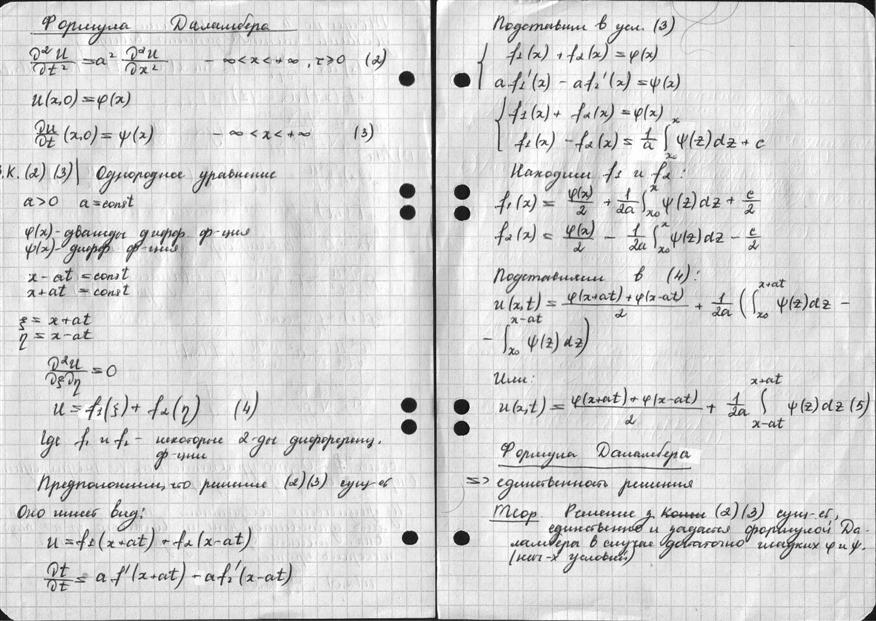 Формула Даламбера
∂²u/∂t² = a² ∂²u/∂x² - ∞ < x < + ∞, τ ≥ 0 (2)
u(x,0) = φ(x)
∂u/∂t (x,0) = ψ(x) - ∞ < x < + ∞ (3)
З.К. (2) (3) | Однородное уравнение
a > 0 a = const
φ(x) - дважды дифф. ф-ция
ψ(x) - дифф ф-ция
x - at = const
x + at = const
ξ = x + at
η = x - at
∂²u/∂ξ∂η = 0
u = f₁(ξ) + f₂(η) (4)
Где f₁ и f₂ - некоторые 2-ды дифференц.
ф-ции
Предположим, что решение (2)(3) сущ-ет
Оно имеет вид:
u = f₁(x+at) + f₂(x-at)
∂t/∂t = a f₁'(x+at) - a f₂'(x-at)
Подставим в усл. (3)
f₁(x) + f₂(x) = φ(x)
a f₁'(x) - a f₂'(x) = ψ(x)
f₁(x) + f₂(x) = φ(x)
f₁(x) - f₂(x) = 1/a ∫ₓ₀ˣ ψ(z)dz + c
Находим f₁ и f₂ :
f₁(x) = φ(x)/2 + 1/2a ∫ₓ₀ˣ ψ(z)dz + c/2
f₂(x) = φ(x)/2 - 1/2a ∫ₓ₀ˣ ψ(z)dz - c/2
Подставляем в (4):
u(x,t) = φ(x+at)+φ(x-at)/2 + 1/2a (∫ₓ₀ˣ⁺ᵃᵗ ψ(z)dz -
- ∫ₓ₀ˣ⁻ᵃᵗ ψ(z)dz)
Или:
u(x,t) = φ(x+at)+φ(x-at)/2 + 1/2a ∫ₓ₋ₐₜˣ⁺ᵃᵗ ψ(z)dz (5)
Формула Даламбера
=> единственность решения
Теор. Решение з. Коши (2)(3) сущ-ет,
единственно и задается формулой Да-
ламбера в случае достаточно гладких φ и ψ.
условий)